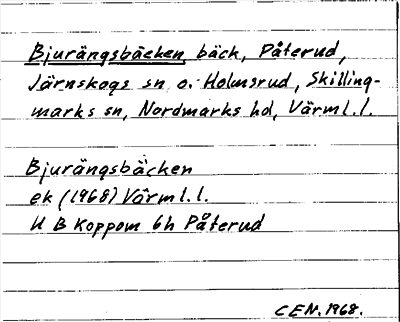 Bjurängsbäcken bäck, Påterud,
Järnskogs sn o. Holmsrud, Skilling-
marks sn, Nordmarks hd, Värml.l.
Bjurängsbäcken
ek (1968) Värml.l.
U B Koppom 6h Påterud
CEN. 1968.